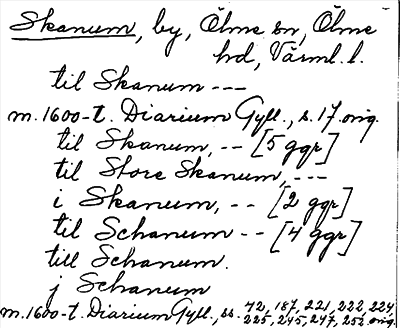 Skanum, by, Ölme sn, Ölme
hd, Värml. l.
til Skanum ---
m. 1600-t. Diarium Gyll., s. 17. orig.
til Skanum, -- [5 ggr]
til Store Skanum, ---
i Skanum, -- [2 ggr]
til Schanum -- [4 ggr]
till Schanum.
j Schanum
m. 1600-t. Diarium Gyll., ss. 42, 187, 221, 222, 224,
225, 245, 247, 252 orig.